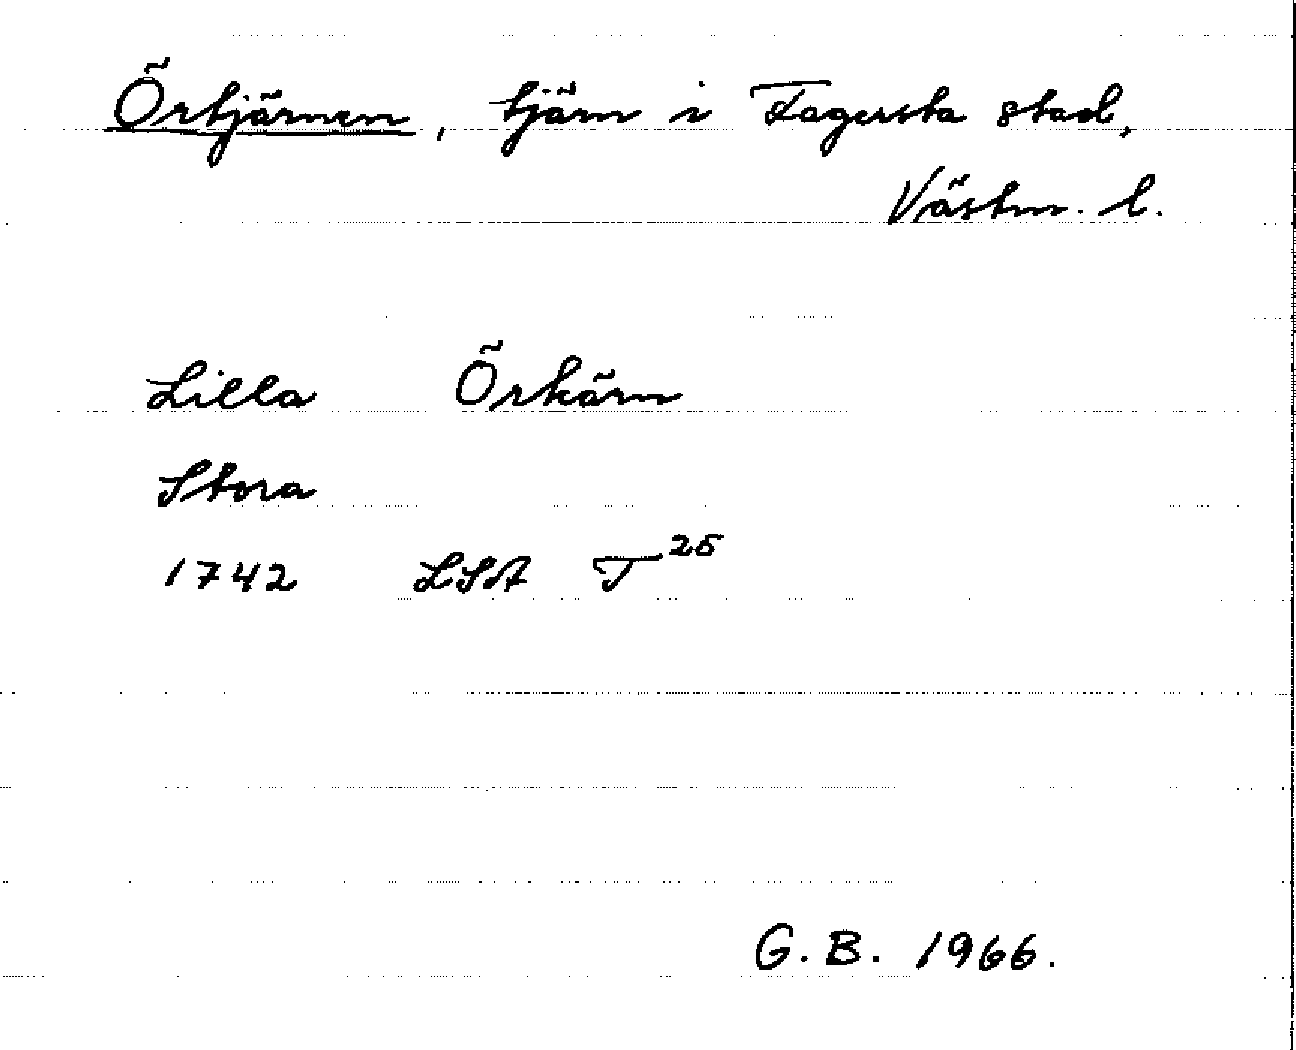 Örtjärnen, tjärn i Fagersta stad,
Västm. l.
Lilla Örkärn
Stora
1742 LSA T 25
G. B. 1966.